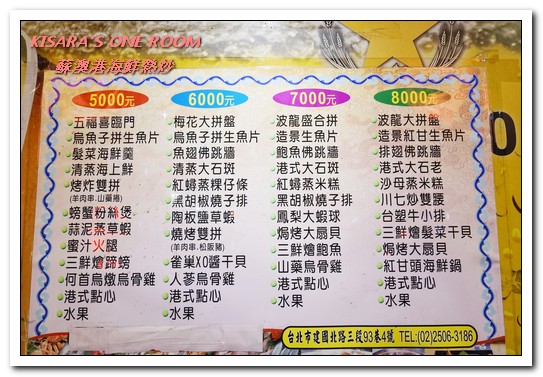 KISARA'S ONE ROOM
蘇澳港海鮮熱炒
5000元
五福喜臨門
烏魚子拼生魚片
髮菜海鮮羹
清蒸海上鮮
烤炸雙拼
(羊肉串.山藥捲)
螃蟹粉絲煲
蒜泥蒸草蝦
蜜汁火腿
三鮮燴蹄膀
何首烏燉烏骨雞
港式點心
水果
6000元
梅花大拼盤
烏魚子拼生魚片
魚翅佛跳牆
清蒸大石斑
紅蟳蒸粿仔條
黑胡椒燒子排
陶板鹽草蝦
燒烤雙拼
(羊肉串.松阪豬)
雀巢XO醬干貝
人蔘烏骨雞
港式點心
水果
7000元
波龍盛合拼
造景生魚片
鮑魚佛跳牆
港式大石斑
紅蟳蒸米糕
黑胡椒燒子排
鳳梨大蝦球
焗烤大扇貝
三鮮燴鮑魚
山藥烏骨雞
港式點心
水果
8000元
波龍大拼盤
造景紅甘生魚片
排翅佛跳牆
港式大石老
沙母蒸米糕
川七炒雙腰
台塑牛小排
三鮮燴髮菜干貝
焗烤大扇貝
紅甘頭海鮮鍋
港式點心
水果
台北市建國北路三段93巷4號 TEL:(02)2506-3186